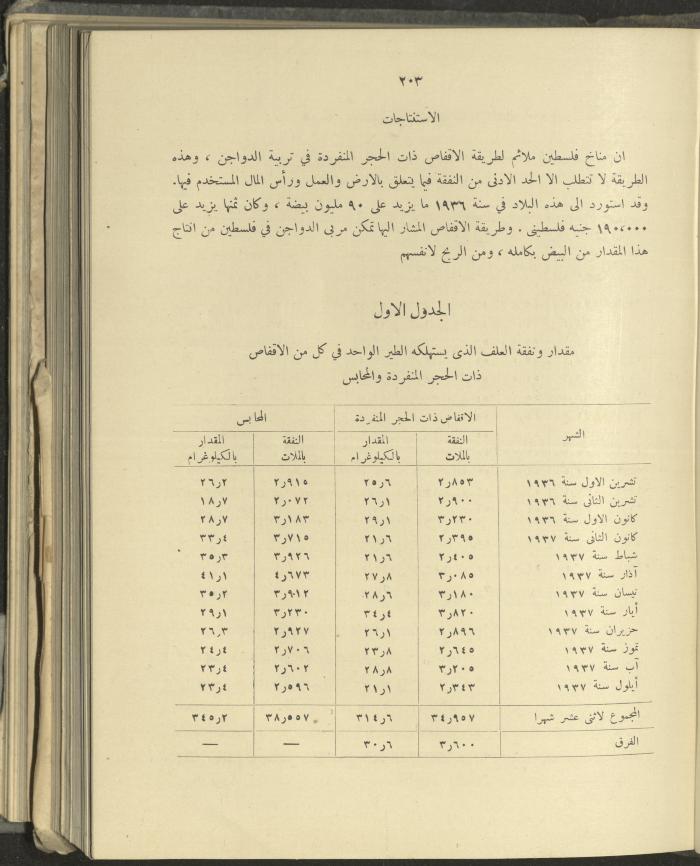 ٢٠٣
الاستنتاجات
ان مناخ فلسطين ملائم لطريقة الاقفاص ذات الحجر المنفردة في تربية الدواجن ، وهذه
الطريقة لا تتطلب الا الحد الادنى من النفقة فيما يتعلق بالارض والعمل ورأس المال المستخدم فيها.
وقد استورد الى هذه البلاد في سنة ١٩٣٦ ما يزيد على ٩٠ مليون بيضة ، وكان ثمنها يزيد على
١٩٠،٠٠٠ جنيه فلسطينى . وطريقة الاقفاص المشار اليها تمكن مربى الدواجن في فلسطين من انتاج
هذا المقدار من البيض بكامله ، ومن الربح لانفسهم
الجدول الاول
مقدار ونفقة العلف الذى يستهلكه الطير الواحد في كل من الاقفاص
ذات الحجر المنفردة والمحابس
الشهر الاقفاص ذات الحجر المنفردة المحابس
النفقة المقدار النفقة المقدار
بالملات بالكيلوغرام بالملات بالكيلوغرام
تشرين الاول سنة ١٩٣٦ ٢٫٨٥٣ ٢٥٫٦ ٢٫٩١٥ ٢٦٫٢
تشرين الثانى سنة ١٩٣٦ ٢٫٩٠٠ ٢٦٫١ ٢٫٠٧٢ ١٨٫٧
كانون الاول سنة ١٩٣٦ ٣٫٢٣٠ ٢٩٫١ ٣٫١٨٣ ٢٨٫٧
كانون الثانى سنة ١٩٣٧ ٢٫٣٩٥ ٢١٫٦ ٣٫٧١٥ ٣٣٫٤
شباط سنة ١٩٣٧ ٢٫٤٠٥ ٢١٫٦ ٣٫٩٢٦ ٣٥٫٣
آذار سنة ١٩٣٧ ٣٫٠٨٥ ٢٧٫٨ ٤٫٦٧٣ ٤١٫١
نيسان سنة ١٩٣٧ ٣٫١٨٠ ٢٨٫٦ ٣٫٩١٢ ٣٥٫٢
أيار سنة ١٩٣٧ ٣٫٨٢٠ ٣٤٫٤ ٣٫٢٣٠ ٢٩٫١
حزيران سنة ١٩٣٧ ٢٫٨٩٦ ٢٦٫١ ٢٫٩٢٧ ٢٦٫٣
تموز سنة ١٩٣٧ ٢٫٦٤٥ ٢٣٫٨ ٢٫٧٠٦ ٢٤٫٤
آب سنة ١٩٣٧ ٣٫٢٠٥ ٢٨٫٨ ٢٫٦٠٢ ٢٣٫٤
أيلول سنة ١٩٣٧ ٢٫٣٤٣ ٢١٫١ ٢٫٥٩٦ ٢٣٫٤
المجموع لاثنى عشر شهرا ٣٤٫٩٥٧ ٣١٤٫٦ ٣٨٫٥٥٧ ٣٤٥٫٢
الفرق ٣٫٦٠٠ ٣٠٫٦ — —